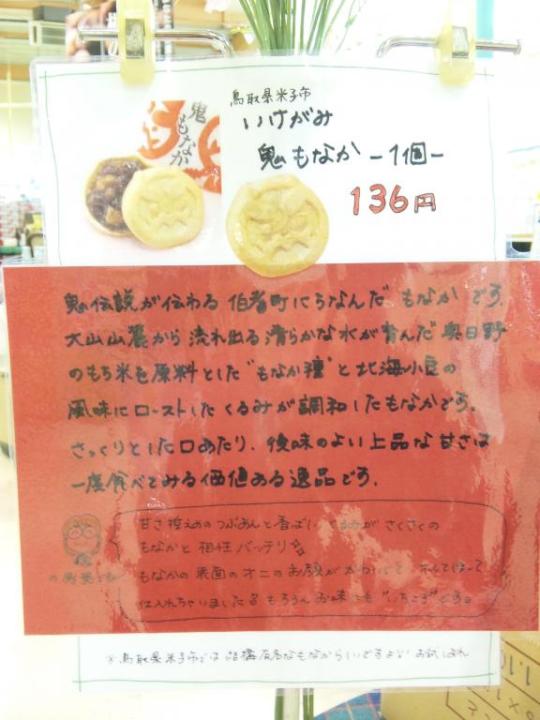 鳥取県米子市
いけがみ
鬼もなか
鬼もなか -1個-
136円
鬼伝説が伝わる伯耆町にちなんだ、もなかです。
大山山麓から流れ出る清らかな水が育んだ奥日野
のもち米を原料とした"もなか種"と北海小豆の
風味にローストしたくるみが調和したもなかです。
さっくりとした口あたり、後味のよい上品な甘さは
一度食べてみる価値ある逸品です。
甘さ控えめのつぶあんと香ばしい くるみがさくさくの
もなかと相性バッチリ
もなかの表面のオニのお顔が
仕入れちゃいました もちろんお味も
※鳥取県米子市では結構有名なもなからしいですよ